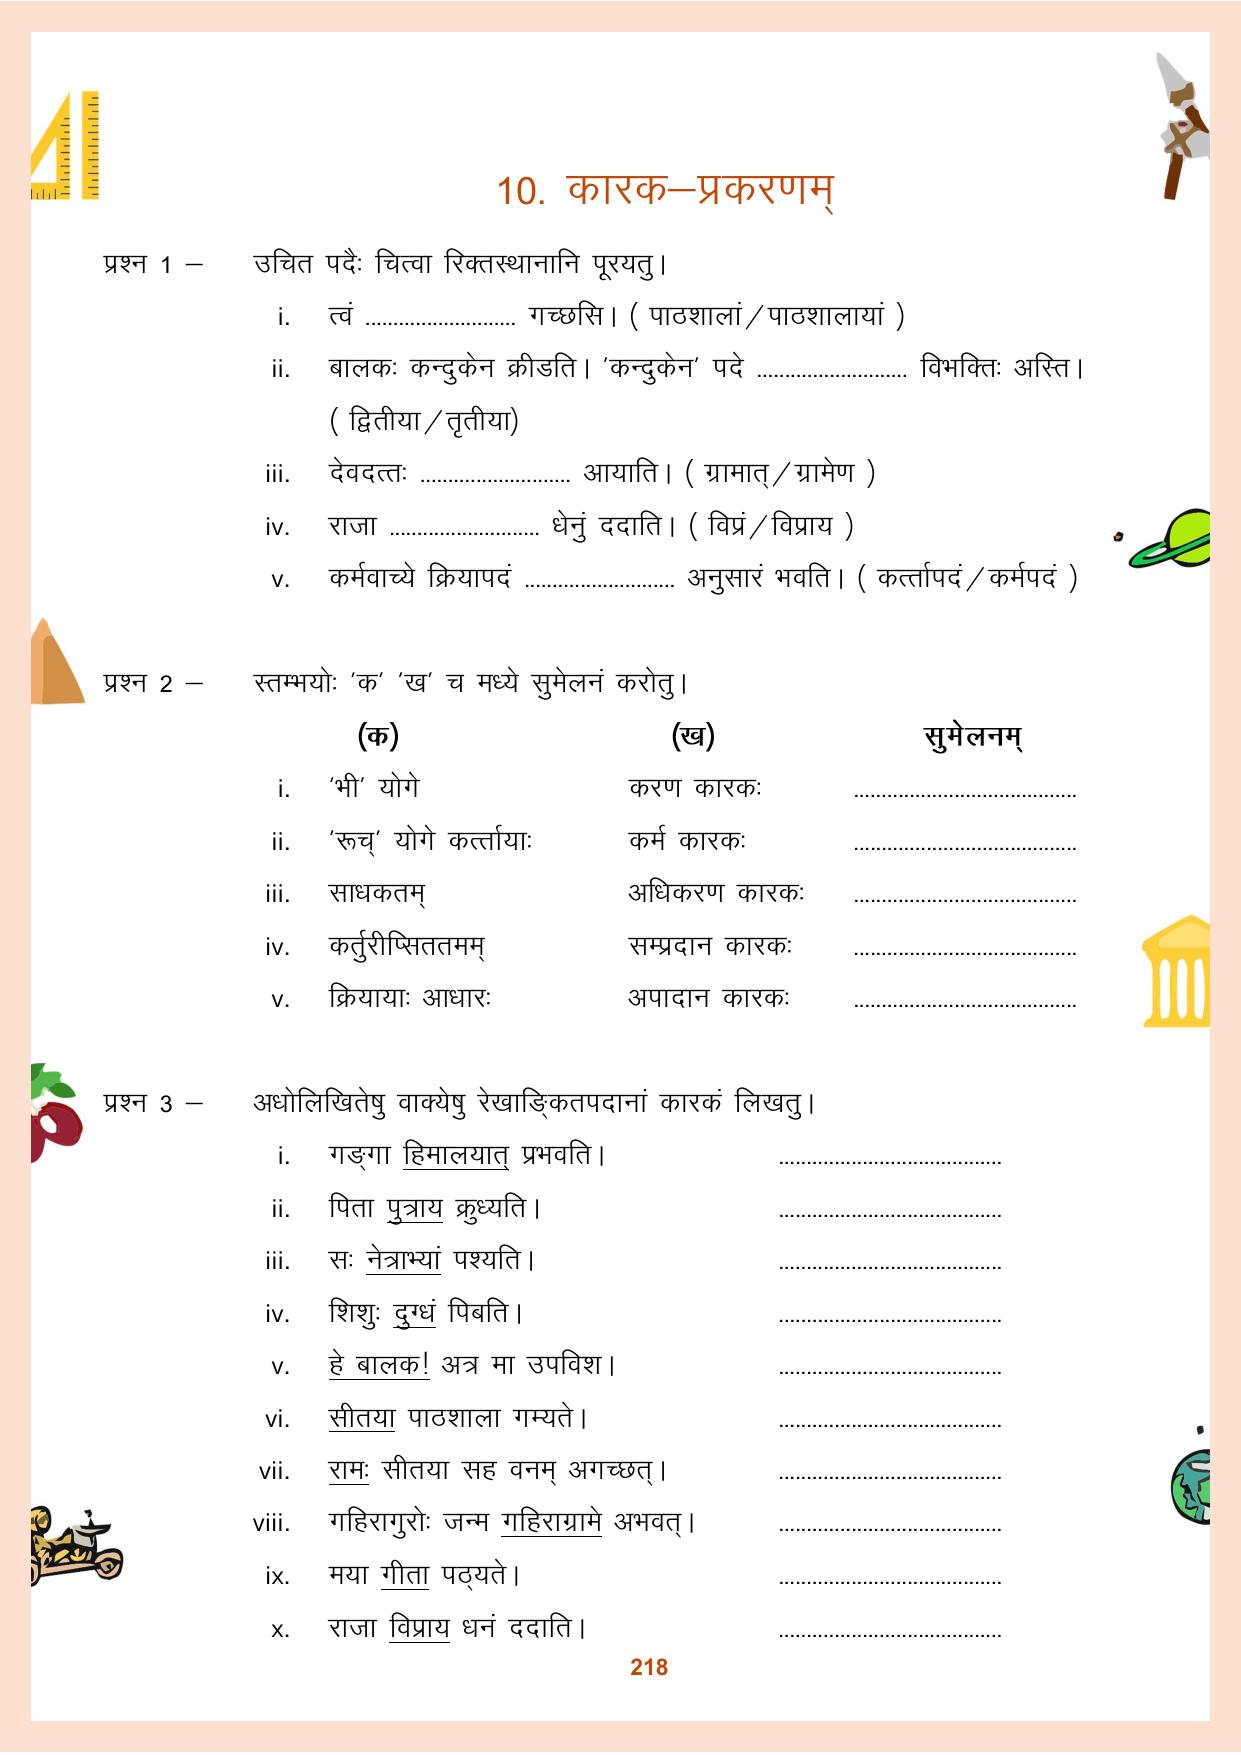 10. कारक–प्रकरणम्
प्रश्न 1 – उचित पदैः चित्वा रिक्तस्थानानि पूरयतु।
i. त्वं ........................... गच्छसि। ( पाठशालां/पाठशालायां )
ii. बालकः कन्दुकेन क्रीडति। 'कन्दुकेन' पदे ........................... विभक्तिः अस्ति।
( द्वितीया/तृतीया)
iii. देवदत्तः ........................... आयाति। ( ग्रामात्/ग्रामेण )
iv. राजा ........................... धेनुं ददाति। ( विप्रं/विप्राय )
v. कर्मवाच्ये क्रियापदं ........................... अनुसारं भवति। ( कर्त्तापदं/कर्मपदं )
प्रश्न 2 – स्तम्भयोः 'क' 'ख' च मध्ये सुमेलनं करोतु।
(क) (ख) सुमेलनम्
i. 'भी' योगे करण कारकः ........................................
ii. 'रूच्' योगे कर्त्तायाः कर्म कारकः ........................................
iii. साधकतम् अधिकरण कारकः ........................................
iv. कर्तुरीप्सिततमम् सम्प्रदान कारकः ........................................
v. क्रियायाः आधारः अपादान कारकः ........................................
प्रश्न 3 – अधोलिखितेषु वाक्येषु रेखाङ्कितपदानां कारकं लिखतु।
i. गङ्गा हिमालयात् प्रभवति। ........................................
ii. पिता पुत्राय क्रुध्यति। ........................................
iii. सः नेत्राभ्यां पश्यति। ........................................
iv. शिशुः दुग्धं पिबति। ........................................
v. हे बालक! अत्र मा उपविश। ........................................
vi. सीतया पाठशाला गम्यते। ........................................
vii. रामः सीतया सह वनम् अगच्छत्। ........................................
viii. गहिरागुरोः जन्म गहिराग्रामे अभवत्। ........................................
ix. मया गीता पठ्यते। ........................................
x. राजा विप्राय धनं ददाति। ........................................
218